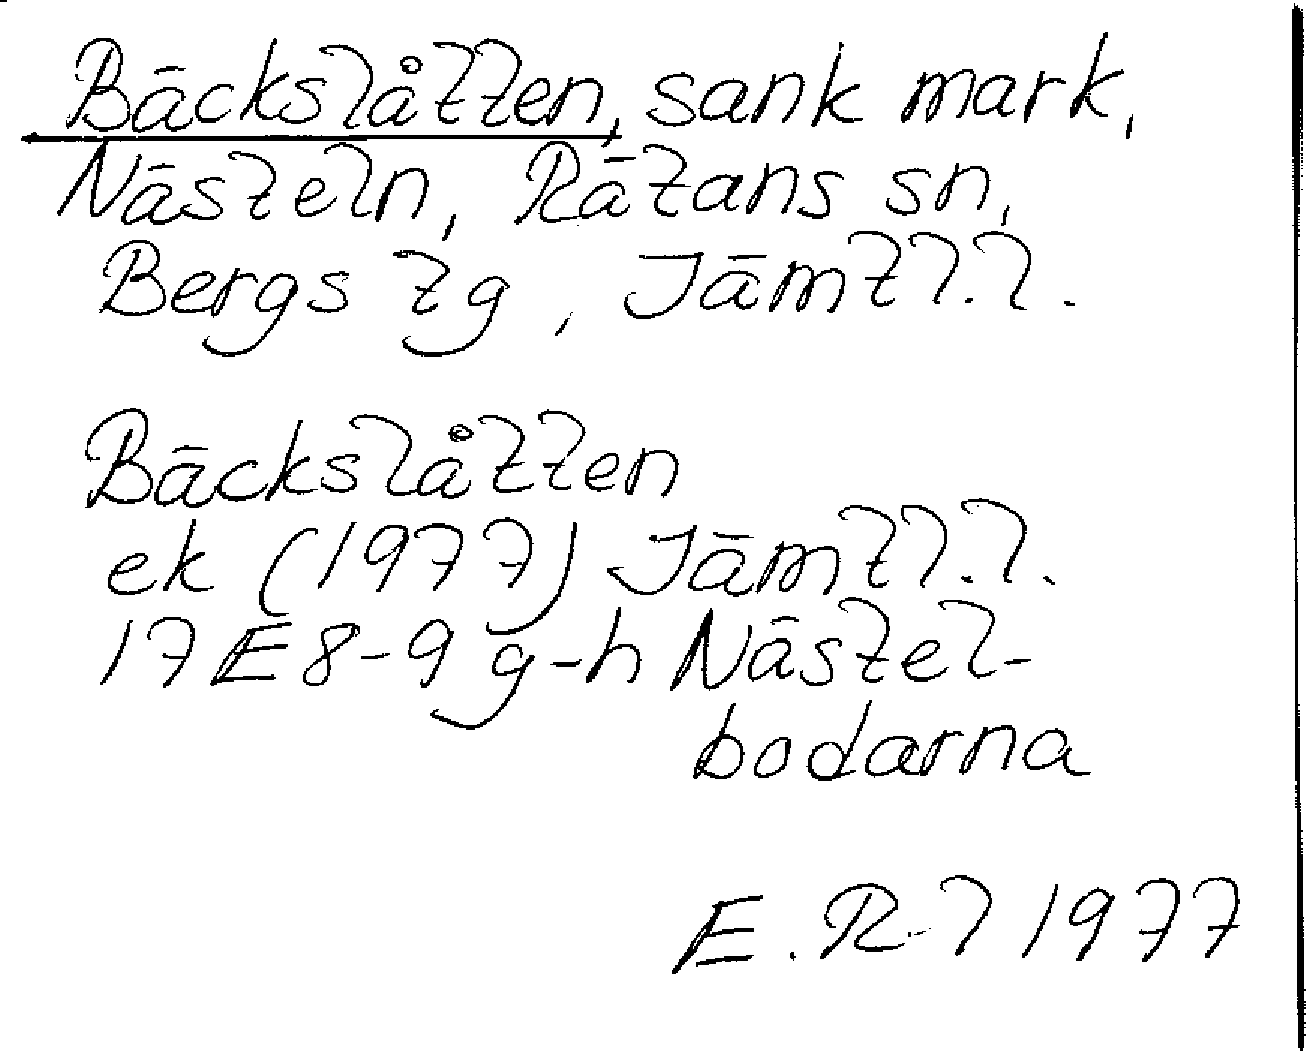 Bäckslåtten, sank mark,
Nästeln, Rätans sn,
Bergs tg, Jämtl.l.
Bäckslåtten
ek (1977) Jämtl.l.
17E8-9 g-h Nästel-
bodarna
E. R-l 1977